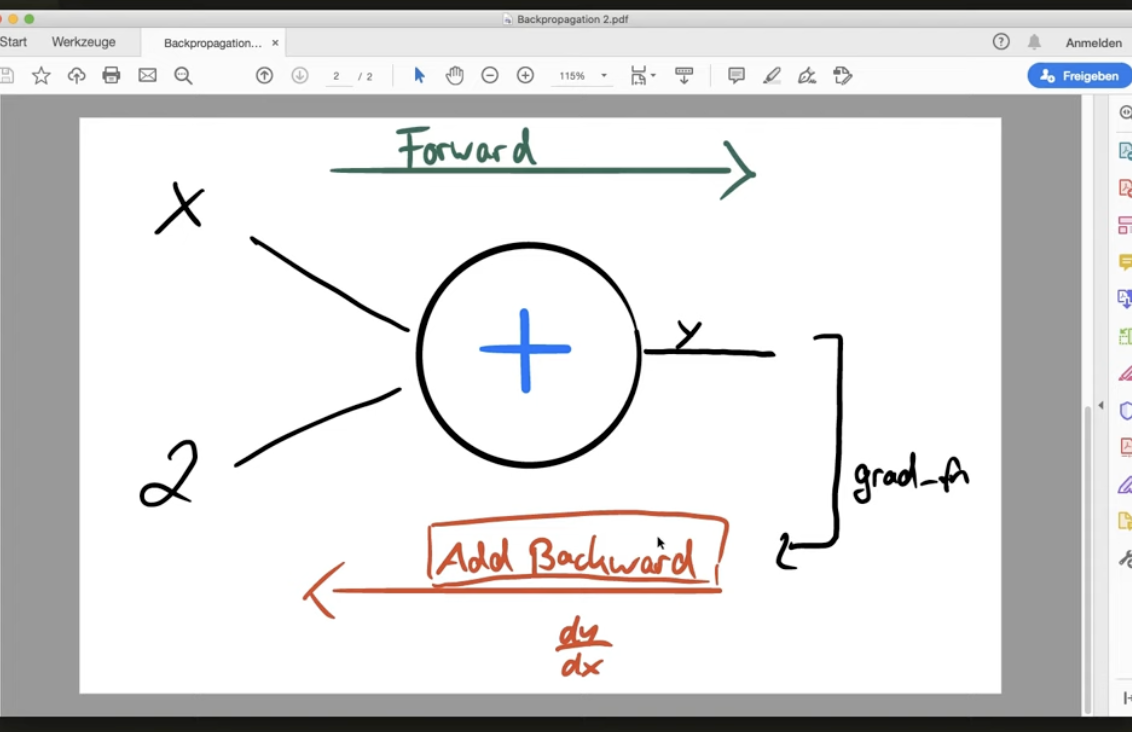 Backpropagation 2.pdf
Start Werkzeuge Backpropagation... × Anmelden
2 / 2 115% Freigeben
Forward
x
+
y
2
grad_fn
Add Backward
dy
dx